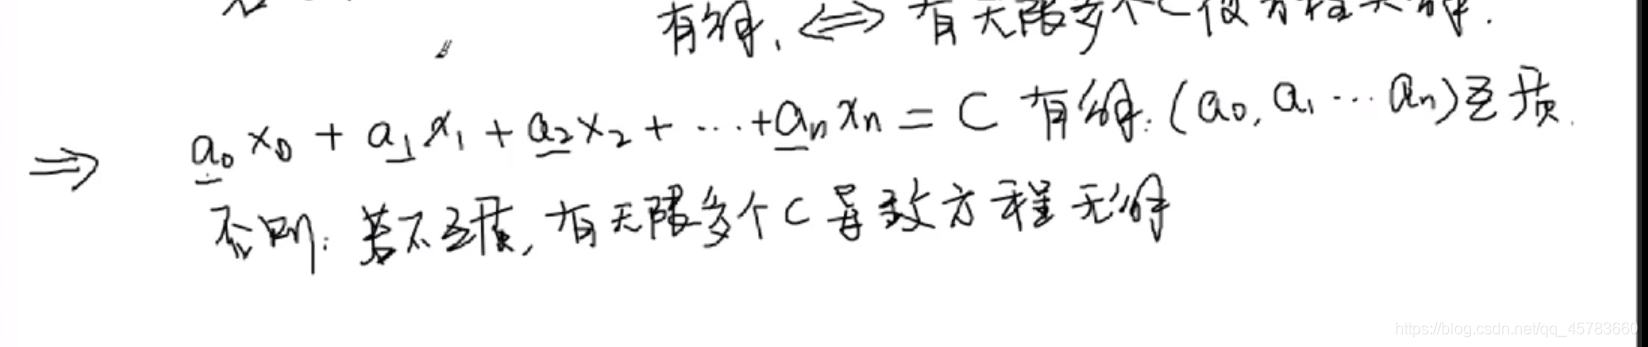 有解, ⟺ 有无限多个C使方程无解.
⟹ a₀x₀ + a₁x₁ + a₂x₂ + ⋯ + aₙxₙ = C 有解: (a₀, a₁ ⋯ aₙ) 互质.
否则: 若不互质, 有无限多个C导致方程无解
https://blog.csdn.net/qq_45783660